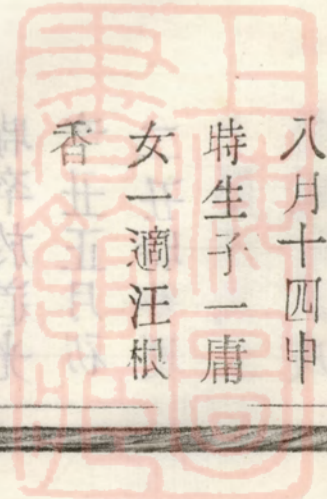 八月十四申
時生子一庸
女一適汪根
香